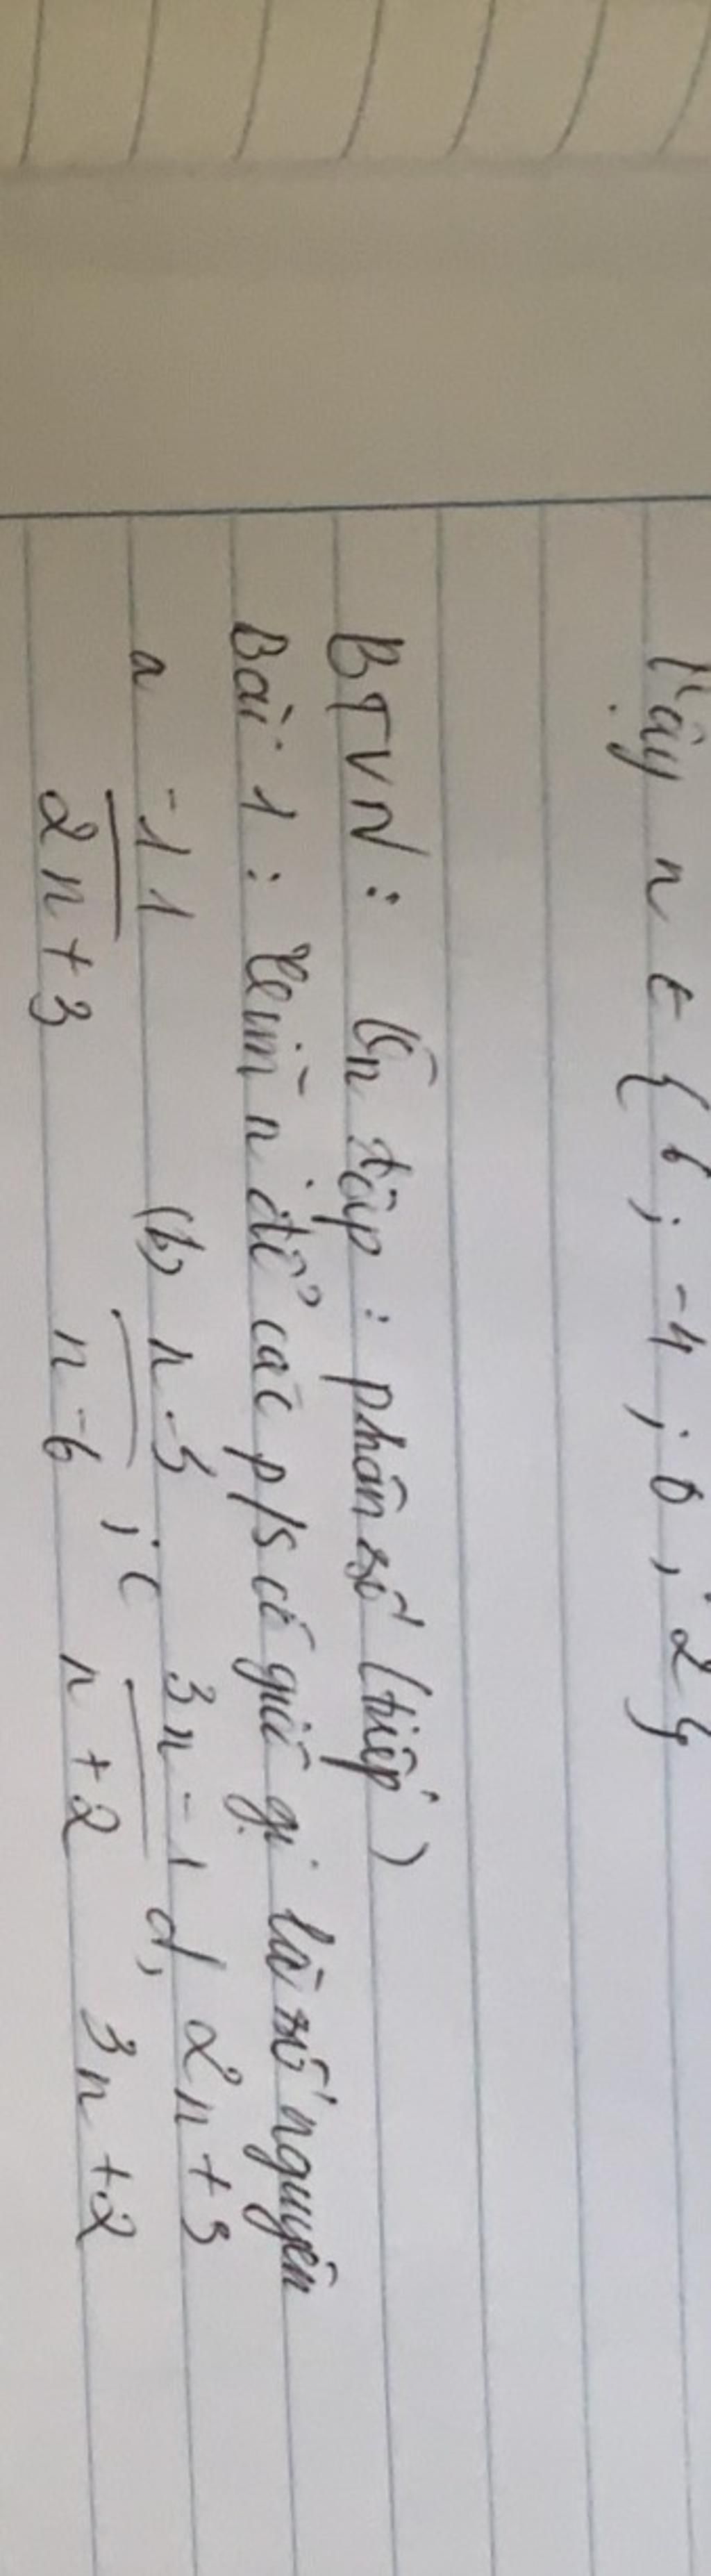 Vậy n ∈ { 6 ; -4 ; 0 ; 2 }
BTVN : Ôn tập : phân số (tiếp)
Bài 1 : Tìm n để các p/s có giá gị là số nguyên
a -11 (b) n-3 ; c 3n-1 d, 2n+3
2n+3 n-6 n+2 3n+2